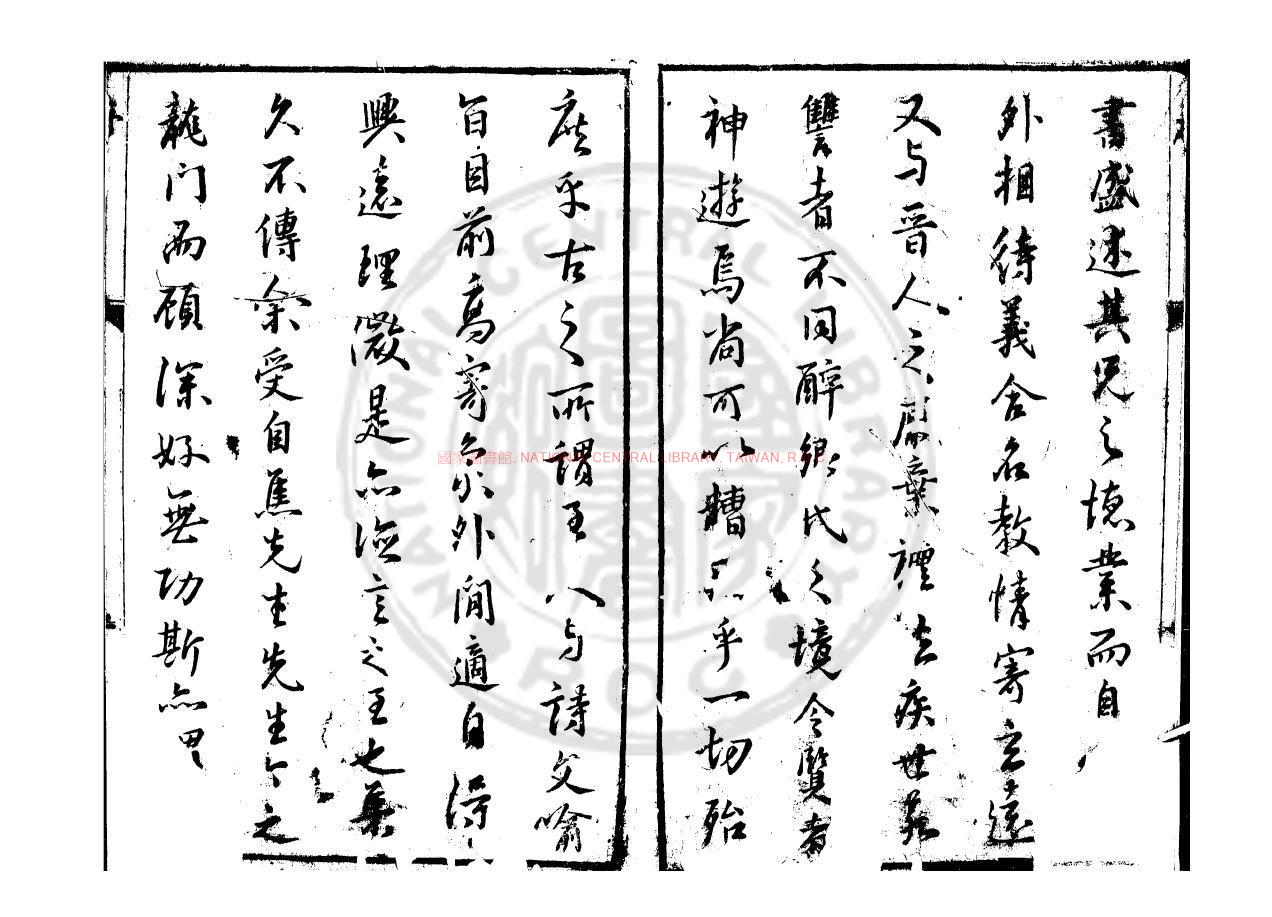 書盛述其兄之德業而自
外相待義舍名教情寄玄遠
又与晋人之屏棄禮法疾世若
讐者不同醉鄉氏之境令覽者
神遊焉尚可以糟粕乎一切殆
庶乎古之所謂至人与詩文喻
旨目前高寄象外閒適自得
興遠理微是亦德言之至也集
久不傳余受自焦先生先生今之
龍门而顧深好無功斯亦異
國家圖書館, NATIONAL CENTRAL LIBRARY, TAIWAN, R.O.C
NATIONAL CENTRAL LIBRARY
ROC